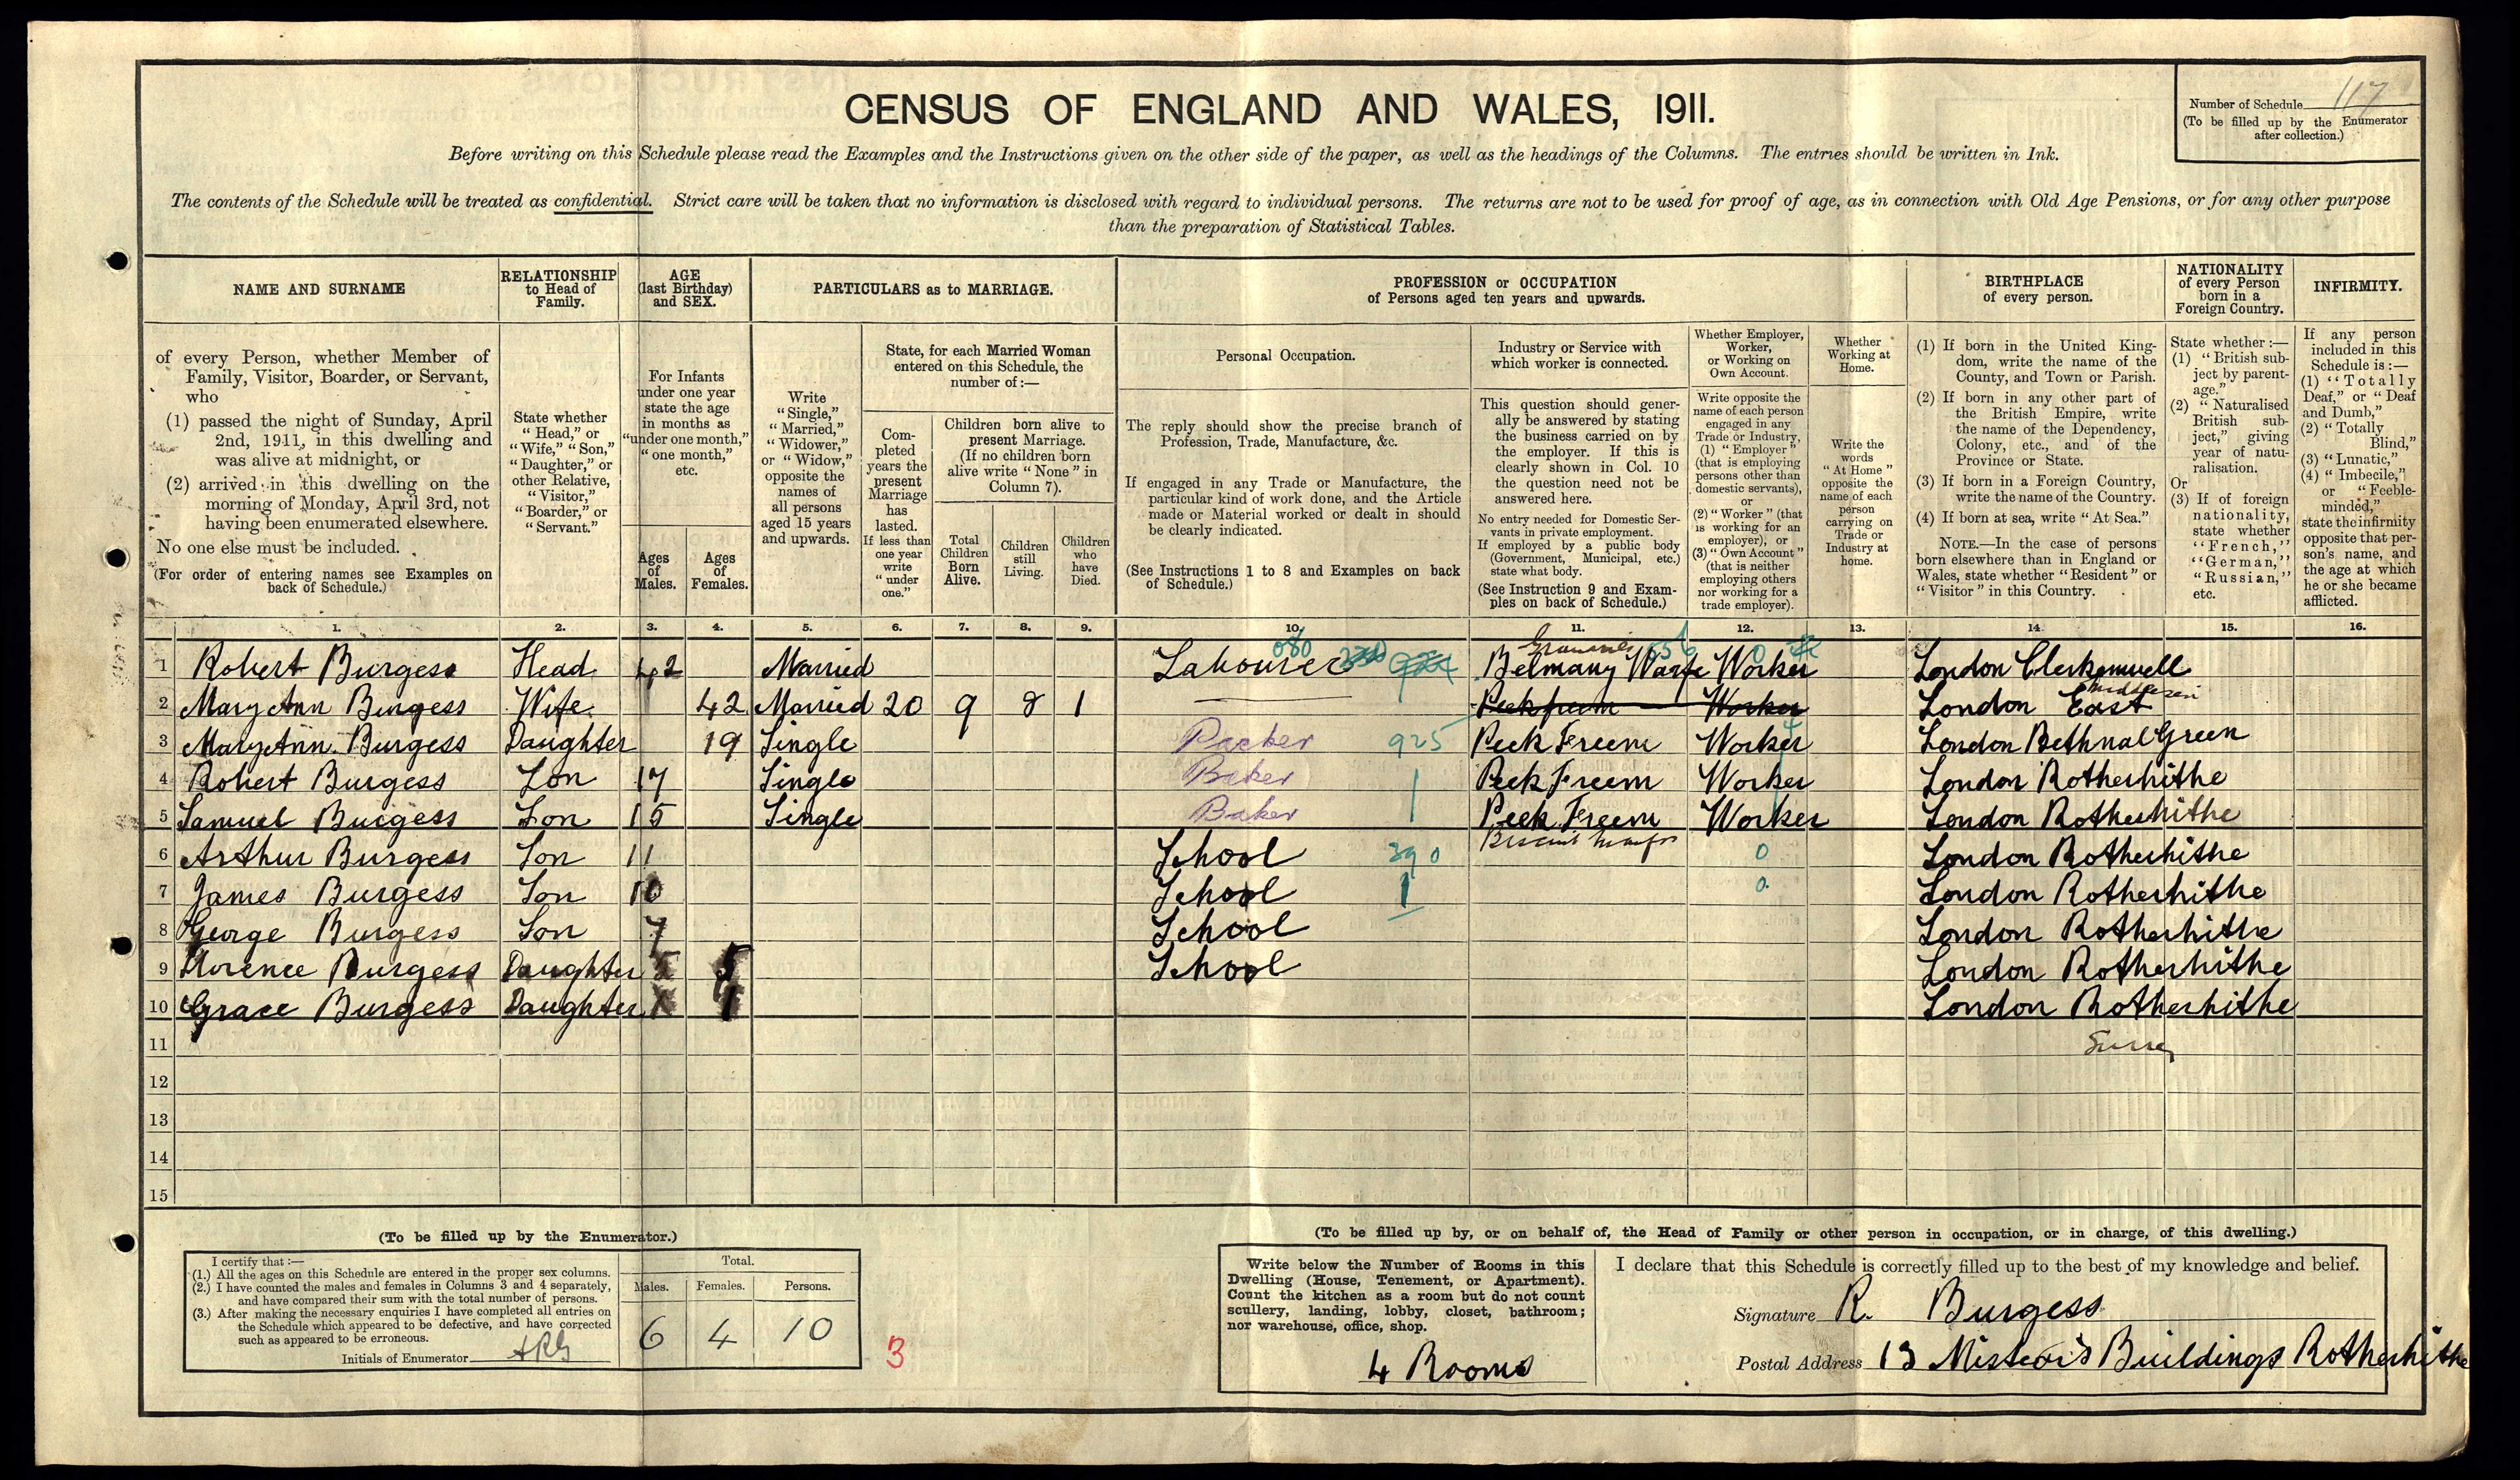 CENSUS OF ENGLAND AND WALES, 1911.
Number of Schedule 117
(To be filled up by the Enumerator
after collection.)
Before writing on this Schedule please read the Examples and the Instructions given on the other side of the paper, as well as the headings of the Columns. The entries should be written in Ink.
The contents of the Schedule will be treated as confidential. Strict care will be taken that no information is disclosed with regard to individual persons. The returns are not to be used for proof of age, as in connection with Old Age Pensions, or for any other purpose
than the preparation of Statistical Tables.
NAME AND SURNAME
of every Person, whether Member of
Family, Visitor, Boarder, or Servant,
who
(1) passed the night of Sunday, April
2nd, 1911, in this dwelling and
was alive at midnight, or
(2) arrived in this dwelling on the
morning of Monday, April 3rd, not
having been enumerated elsewhere.
No one else must be included.
(For order of entering names see Examples on
back of Schedule.)
RELATIONSHIP
to Head of
Family.
State whether
"Head," or
"Wife," "Son,"
"Daughter," or
other Relative,
"Visitor,"
"Boarder," or
"Servant."
AGE
(last Birthday)
and SEX.
For Infants
under one year
state the age
in months as
"under one month,"
"one month,"
etc.
Ages
of
Males.
Ages
of
Females.
PARTICULARS as to MARRIAGE.
Write
"Single,"
"Married,"
"Widower,"
or "Widow,"
opposite the
names of
all persons
aged 15 years
and upwards.
State, for each Married Woman
entered on this Schedule, the
number of:—
Com-
pleted
years the
present
Marriage
has
lasted.
If less than
one year
write
"under
one."
Children born alive to
present Marriage.
(If no children born
alive write "None" in
Column 7).
Total
Children
Born
Alive.
Children
still
Living.
Children
who
have
Died.
PROFESSION or OCCUPATION
of Persons aged ten years and upwards.
Personal Occupation.
The reply should show the precise branch of
Profession, Trade, Manufacture, &c.
If engaged in any Trade or Manufacture, the
particular kind of work done, and the Article
made or Material worked or dealt in should
be clearly indicated.
(See Instructions 1 to 8 and Examples on back
of Schedule.)
Industry or Service with
which worker is connected.
This question should gener-
ally be answered by stating
the business carried on by
the employer. If this is
clearly shown in Col. 10
the question need not be
answered here.
No entry needed for Domestic Ser-
vants in private employment.
If employed by a public body
(Government, Municipal, etc.)
state what body.
(See Instruction 9 and Exam-
ples on back of Schedule.)
Whether Employer,
Worker,
or Working on
Own Account.
Write opposite the
name of each person
engaged in any
Trade or Industry,
(1) "Employer"
(that is employing
persons other than
domestic servants),
or
(2) "Worker" (that
is working for an
employer), or
(3) "Own Account"
(that is neither
employing others
nor working for a
trade employer).
Whether
Working at
Home.
Write the
words
"At Home"
opposite the
name of each
person
carrying on
Trade or
Industry at
home.
BIRTHPLACE
of every person.
(1) If born in the United King-
dom, write the name of the
County, and Town or Parish.
(2) If born in any other part of
the British Empire, write
the name of the Dependency,
Colony, etc., and of the
Province or State.
(3) If born in a Foreign Country,
write the name of the Country.
(4) If born at sea, write "At Sea."
NOTE.—In the case of persons
born elsewhere than in England or
Wales, state whether "Resident" or
"Visitor" in this Country.
NATIONALITY
of every Person
born in a
Foreign Country.
State whether:—
(1) "British sub-
ject by parent-
age."
(2) "Naturalised
British sub-
ject," giving
year of natu-
ralisation.
Or
(3) If of foreign
nationality,
state whether
"French,"
"German,"
"Russian,"
etc.
INFIRMITY.
If any person
included in this
Schedule is:—
(1) "Totally
Deaf," or "Deaf
and Dumb,"
(2) "Totally
Blind,"
(3) "Lunatic,"
(4) "Imbecile,"
or "Feeble-
minded,"
state the infirmity
opposite that per-
son's name, and
the age at which
he or she became
afflicted.
1. 2. 3. 4. 5. 6. 7. 8. 9. 10. 11. 12. 13. 14. 15. 16.
1 Robert Burgess Head 42 Married Labourer 080 Belmany Warfe Worker 0 London Clerkenwell
2 Mary Ann Burgess Wife 42 Married 20 9 8 1 Worker London East Middlesex
3 Mary Ann Burgess Daughter 19 Single Packer 925 Peek Freem Worker London Bethnal Green
4 Robert Burgess Son 17 Single Baker Peek Freem Worker London Rotherhithe
5 Samuel Burgess Son 15 Single Baker Peek Freem Worker London Rotherhithe
Biscuit Manfrs
6 Arthur Burgess Son 11 School 390 0 London Rotherhithe
7 James Burgess Son 10 School 0 London Rotherhithe
8 George Burgess Son 7 School London Rotherhithe
9 Florence Burgess Daughter 5 School London Rotherhithe
10 Grace Burgess Daughter 1 London Rotherhithe
11 Surrey
12
13
14
15
(To be filled up by the Enumerator.)
I certify that:—
(1.) All the ages on this Schedule are entered in the proper sex columns.
(2.) I have counted the males and females in Columns 3 and 4 separately,
and have compared their sum with the total number of persons.
(3.) After making the necessary enquiries I have completed all entries on
the Schedule which appeared to be defective, and have corrected
such as appeared to be erroneous.
Initials of Enumerator
Total.
Males. Females. Persons.
6 4 10
3
(To be filled up by, or on behalf of, the Head of Family or other person in occupation, or in charge, of this dwelling.)
Write below the Number of Rooms in this
Dwelling (House, Tenement, or Apartment).
Count the kitchen as a room but do not count
scullery, landing, lobby, closet, bathroom;
nor warehouse, office, shop.
4 Rooms
I declare that this Schedule is correctly filled up to the best of my knowledge and belief.
Signature R. Burgess
Postal Address 13 Buildings Rotherhithe